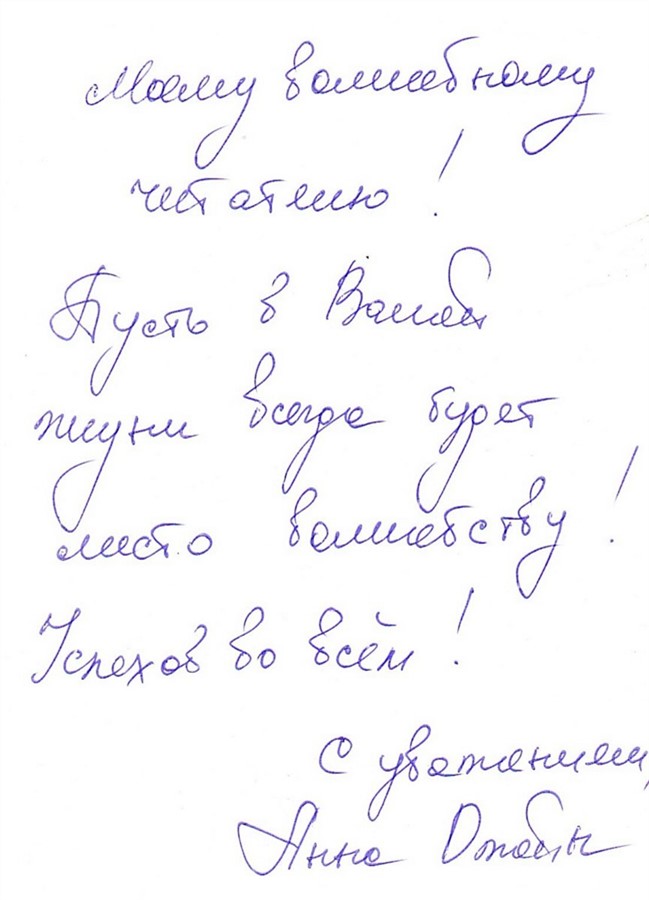 Моему волшебному
читателю!
Пусть в Вашей
жизни всегда будет
место волшебству!
Успехов во всём!
С уважением,
Анна Джейн